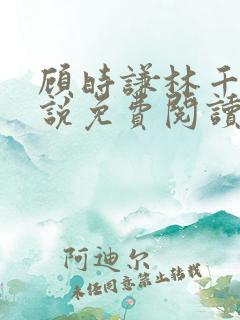 顾時謙林千
說免費閱讀
阿迪尔
未经同意禁止转载